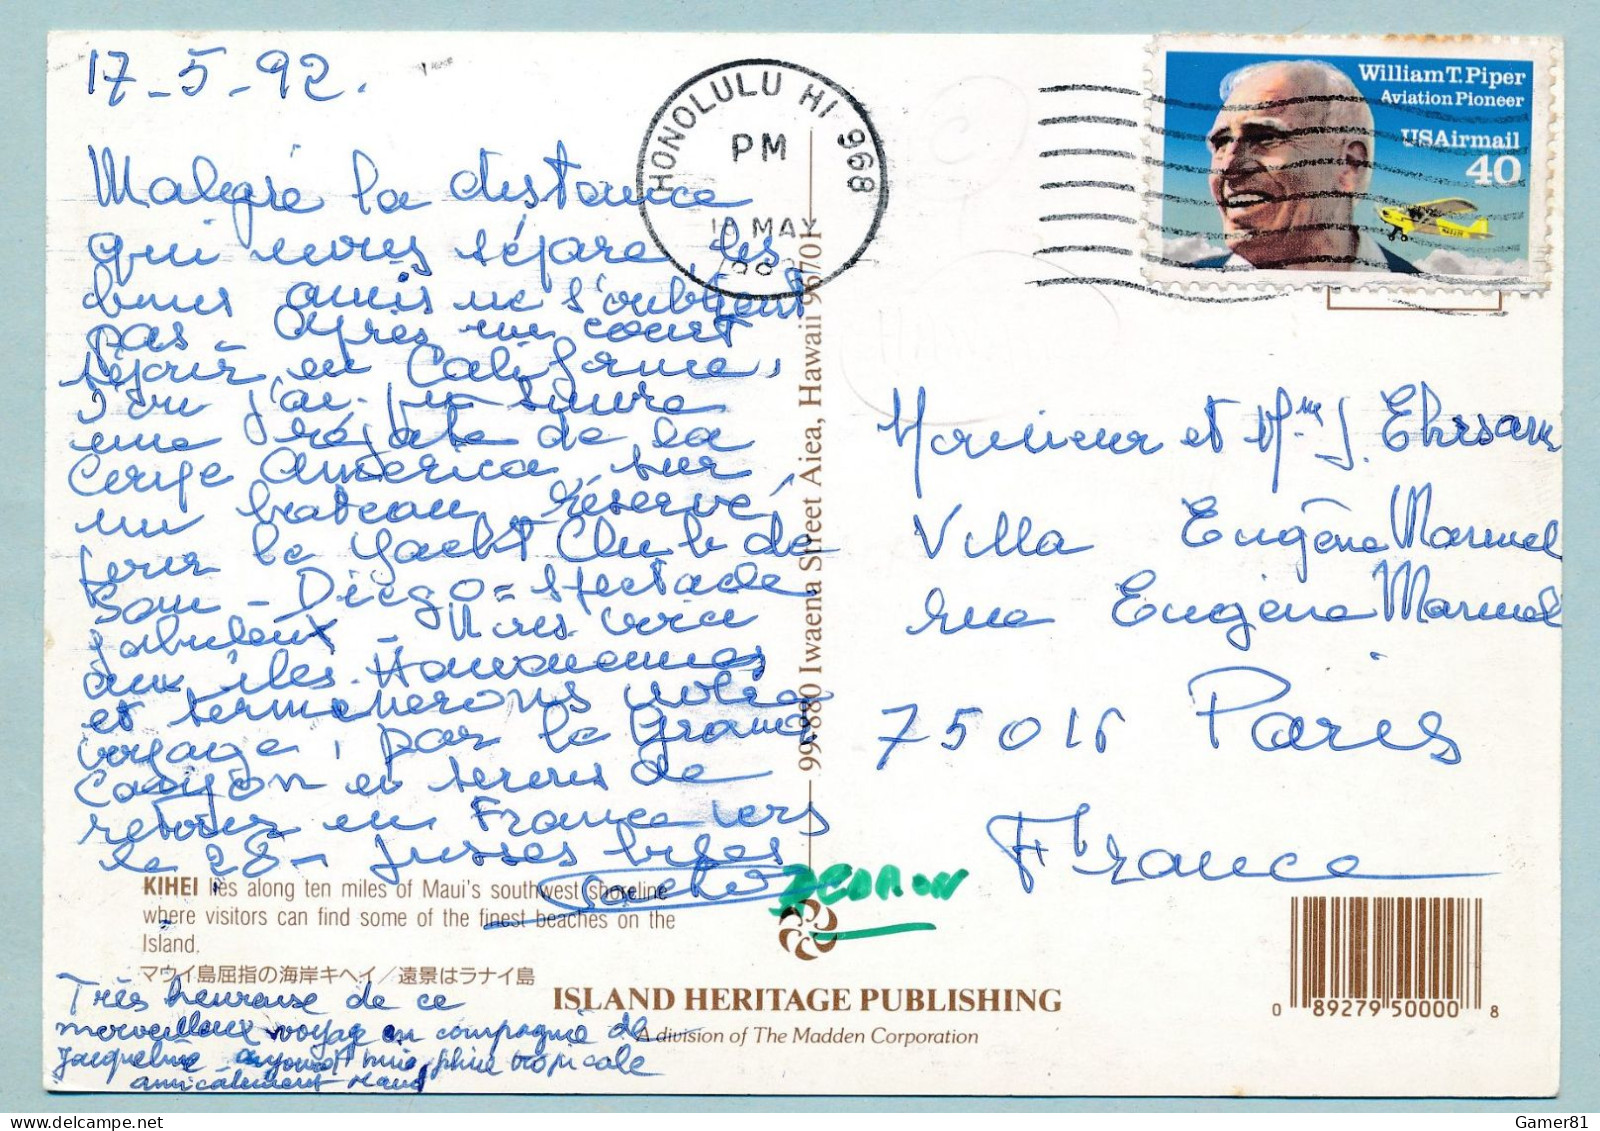 17-5-92.
Malgré la distance
qui nous sépare, les
bons amis ne s'oublient
pas - Après un court
séjour en Californie,
où j'ai pu suivre
une régate de la
Coupe America, sur
un bateau réservé
pour le Yacht Club de
San-Diego = spectacle
fabuleux -
aux îles Hawaiennes
et terminerons notre
voyage, par le Grand
Canyon et serons de
retour en France vers
le 28 -
Très heureuse de ce
merveilleux voyage en compagnie de
Jacqueline - aujourd'hui, pluie tropicale
amicalement
HONOLULU HI 968
PM
MAY
William T. Piper
Aviation Pioneer
USAirmail
40
Monsieur et Mme J. Ehrsam
Villa Eugène Manuel
rue Eugène Manuel
75016 Paris
France
99-880 Iwaena Street Aiea, Hawaii 96701
KIHEI lies along ten miles of Maui's southwest shoreline
where visitors can find some of the finest beaches on the
Island.
マウイ島屈指の海岸キヘイ／遠景はラナイ島
ISLAND HERITAGE PUBLISHING
A division of The Madden Corporation
0 89279 50000 8
Gamer81